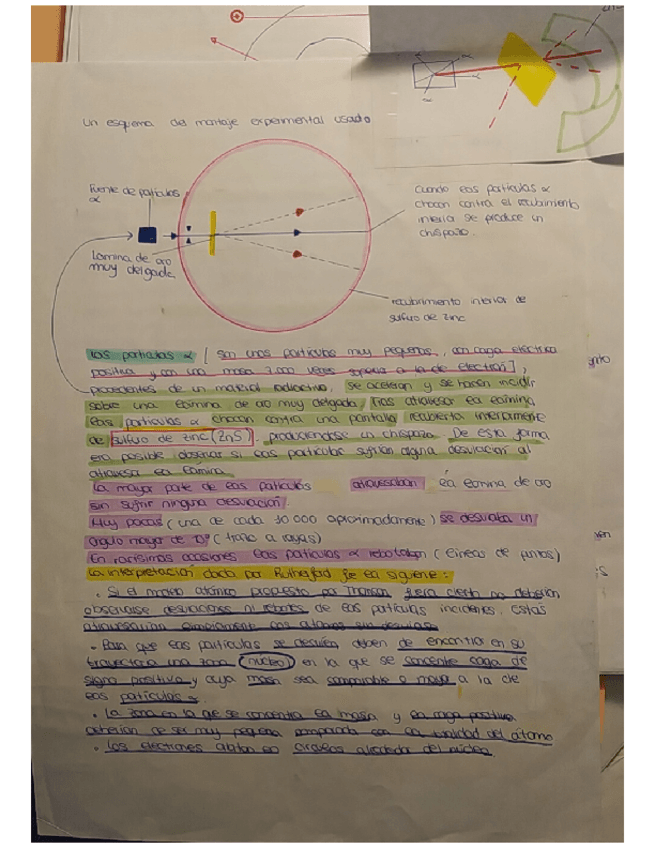 Un esquema del montaje experimental usado
Fuente de partículas
α
Lámina de oro
muy delgada
Cuando las partículas α
chocan contra el recubrimiento
interior se produce un
chispazo.
recubrimiento interior de
sulfuro de zinc
Las partículas α [ son unas partículas muy pequeñas, con carga eléctrica
positiva y con una masa 7.000 veces superior a la del electrón],
procedentes de un material radioactivo, se aceleran y se hacen incidir
sobre una lámina de oro muy delgada. Tras atravesar la lámina
las partículas α chocan contra una pantalla recubierta interiormente
de sulfuro de zinc (ZnS), produciéndose un chispazo. De esta forma
era posible observar si las partículas sufrían alguna desviación al
atravesar la lámina.
La mayor parte de las partículas atravesaban la lámina de oro
sin sufrir ninguna desviación.
Muy pocas (una de cada 10 000 aproximadamente) se desviaba un
ángulo mayor de 10º (trazo a rayas)
En rarísimas ocasiones las partículas α rebotaban (líneas de puntos)
La interpretación dada por Rutherford fue la siguiente:
· Si el modelo atómico propuesto por Thomson fuera cierto no deberían
observarse desviaciones ni rebotes de las partículas incidentes. Estas
atravesarían simplemente los átomos sin desviarse
· Para que las partículas se desvíen deben de encontrar en su
trayectoria una zona (núcleo) en la que se concentre carga de
signo positivo y cuya masa sea comparable o mayor a la de
las partículas α.
· La zona en la que se concentra la masa y la carga positiva
deberían de ser muy pequeña comparada con la totalidad del átomo
· Los electrones orbitan en círculos alrededor del núcleo.